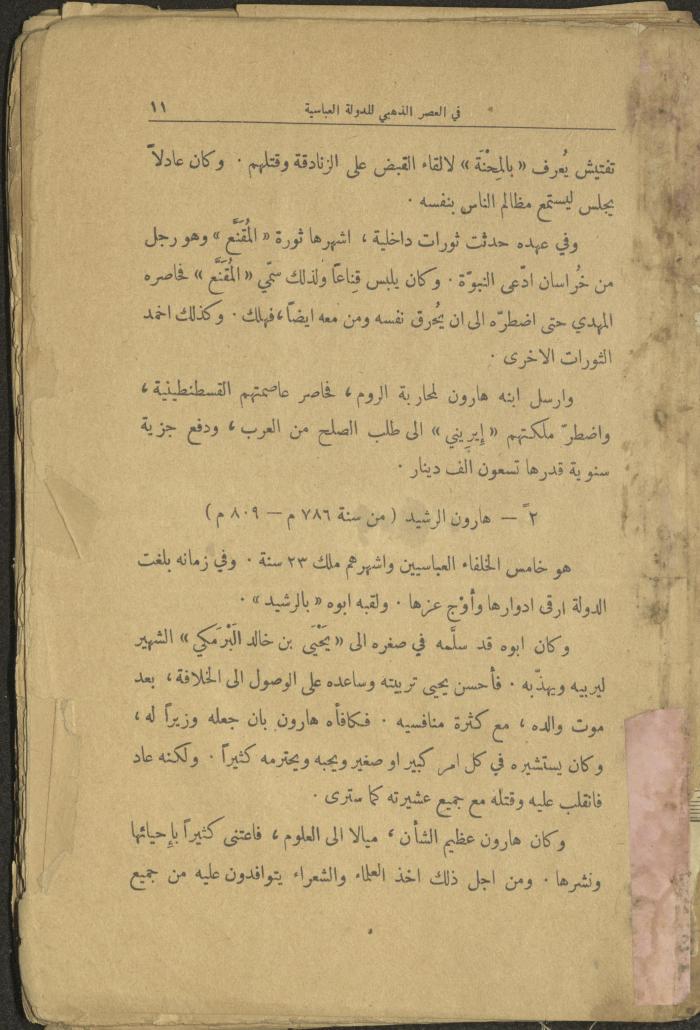 في العصر الذهبي للدولة العباسية ١١
تفتيش يُعرف «بالمِحْنَة» لالقاء القبض على الزنادقة وقتلهم . وكان عادلاً
يجلس ليستمع مظالم الناس بنفسه .
وفي عهده حدثت ثورات داخلية ، اشهرها ثورة «المُقنَّع» وهو رجل
من خُراسان ادّعى النبوّة . وكان يلبس قِناعًا ولذلك سمّي «المُقنَّع» فحاصره
المهدي حتى اضطرّه الى ان يُحرق نفسه ومن معه ايضاً ، فهلك . وكذلك اخمد
الثورات الاخرى .
وارسل ابنه هارون لمحاربة الروم ، فحاصر عاصمتهم القسطنطينية ،
واضطرّ ملكتهم «إِيرِيني» الى طلب الصلح من العرب ، ودفع جزية
سنوية قدرها تسعون الف دينار .
٢ً — هارون الرشيد (من سنة ٧٨٦ م — ٨٠٩ م)
هو خامس الخلفاء العباسيين واشهرهم ملك ٢٣ سنة . وفي زمانه بلغت
الدولة ارقى ادوارها وأوْج عزها . ولقبه ابوه «بالرشيد» .
وكان ابوه قد سلَّمه في صغره الى «يَحْيَى بن خالد البَرْمَكي» الشهير
ليربيه ويهذّبه . فأحسن يحيى تربيته وساعده على الوصول الى الخلافة ، بعد
موت والده ، مع كثرة منافسيه . فكافأه هارون بان جعله وزيراً له ،
وكان يستشيره في كل امر كبير او صغير ويحبه ويحترمه كثيراً . ولكنه عاد
فانقلب عليه وقتله مع جميع عشيرته كما سترى .
وكان هارون عظيم الشأن ، ميالا الى العلوم ، فاعتنى كثيراً بإحيائها
ونشرها . ومن اجل ذلك اخذ العلماء والشعراء يتوافدون عليه من جميع